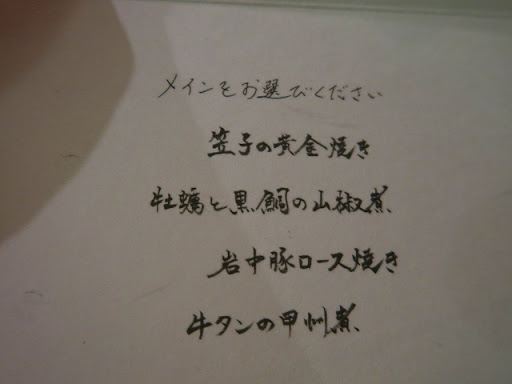 メインをお選びください
笠子の黄金焼き
牡蠣と黒鯛の山椒煮
岩中豚ロース焼き
牛タンの甲州煮